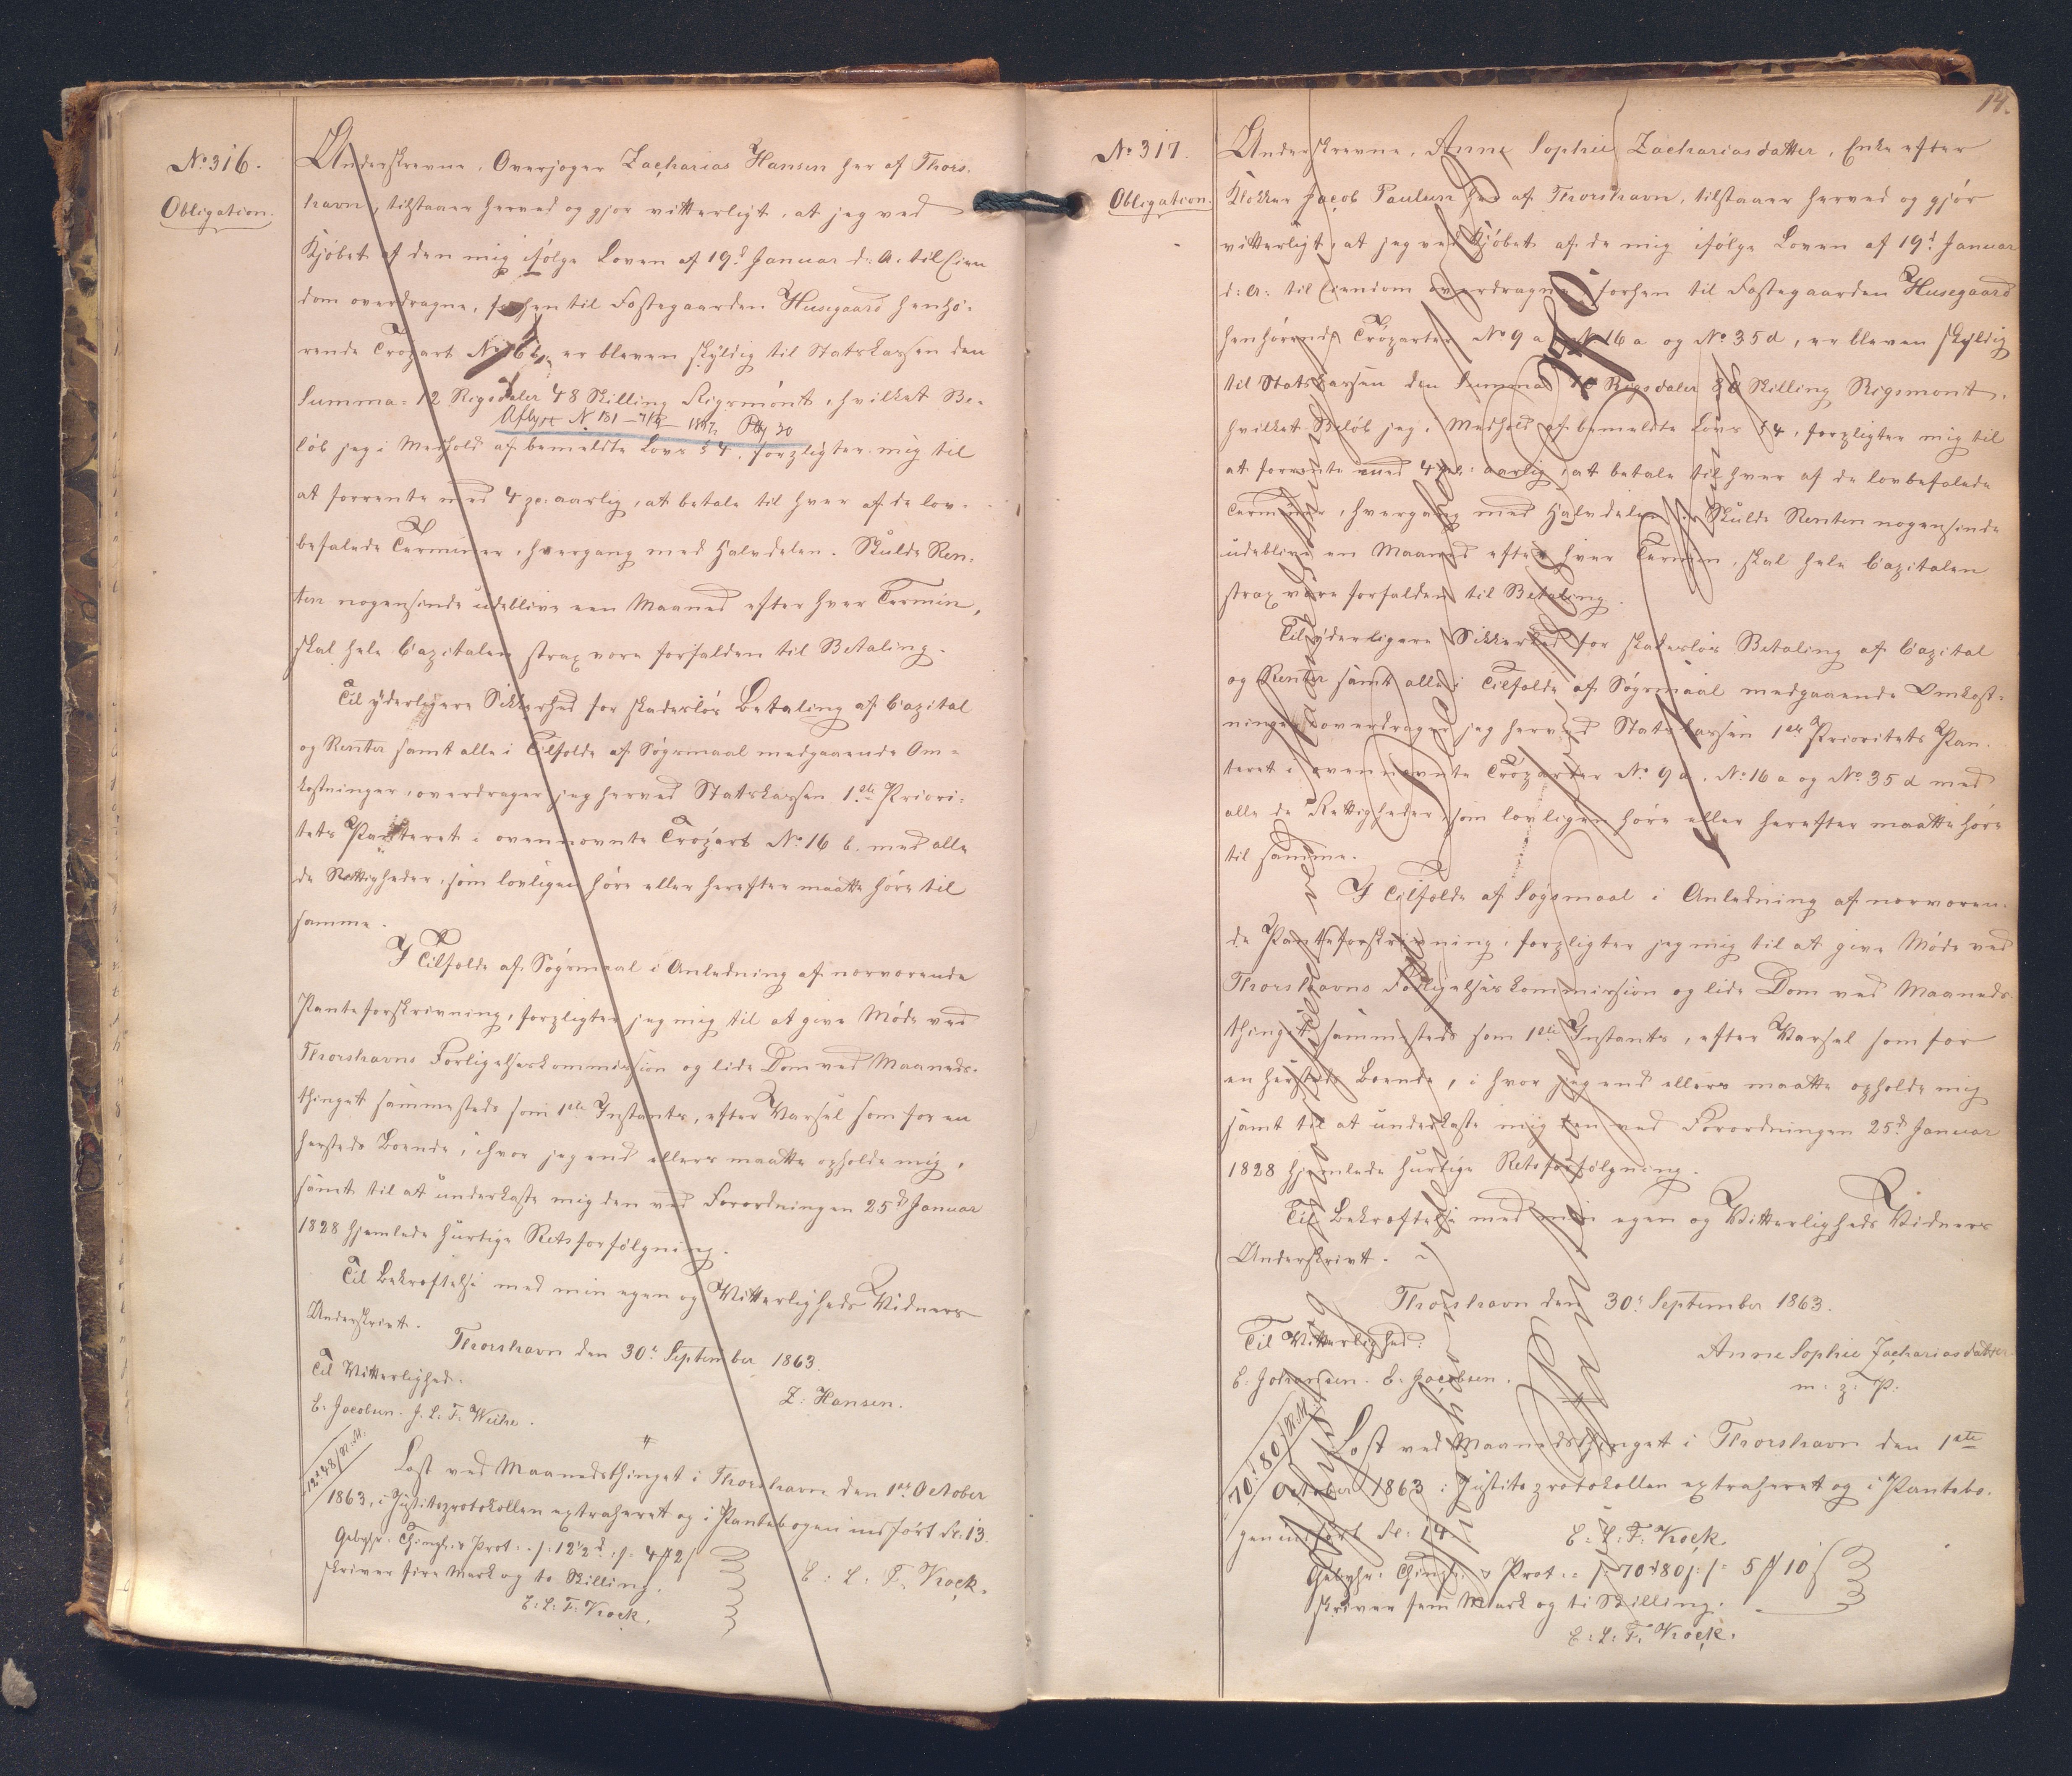 No 316.
Obligation.
Underskrevne, Overjæger Zacharias Hansen her af Thors-
havn, tilstaaer herved og gjør vitterligt, at jeg ved
Kjøbet af den mig ifølge Loven af 19d Januar d: A: til Eien
dom overdragne, forhen til Fæstegaarden Husegaard henhø-
rende Trøpart No 16 b, er bleven skyldig til Statskassen den
Summa 12 Rigsdaler 48 Skilling Rigsmønt, hvilket Be-
Aflyst N. 131 - 1887.
løb jeg i Medhold af bemeldte Lovs § 4, forpligter mig til
at forrente med 4 pc: aarlig, at betale til hver af de lov-
befalede Terminer, hvergang med Halvdelen. Skulde Ren-
ten nogensinde udeblive een Maaned efter hver Termin,
skal hele Capitalen strax være forfalden til Betaling.
Til yderligere Sikkerhed for skadesløs Betaling af Capital
og Renter samt alle i Tilfælde af Søgsmaal medgaaende Om-
kostninger, overdrager jeg herved Statskassen 1ste Priori-
tets Panteret i ovennævnte Trøpart No 16 b. med alle
de Rettigheder, som lovligen høre eller herefter maatte høre til
samme.
I Tilfælde af Søgsmaal i Anledning af nærværende
Panteforskrivning, forpligter jeg mig til at give Møde ved
Thorshavns Forligelseskommission og lide Dom ved Maaneds-
thinget sammesteds som 1ste Instants, efter Varsel som for en
hersteds Boende, i hvor jeg end ellers maatte opholde mig,
samt til at underkaste mig den ved Forordningen 25d Januar
1828 hjemlede hurtige Retsforfølgning.
Til Bekræftelse med min egen og Vitterligheds Vidners
Underskrivt.
Thorshavn den 30te September 1863.
Til Vitterlighed.
Z: Hansen.
C: Jacobsen. J. L. F. Weihe.
12d 48 s R.M.
Læst ved Maanedsthinget i Thorshavn den 1ste October
1863, i Justitsprotokollen extraheret og i Pantebogen indført Fl: 13.
E: L: F: Krock.
Gebyhr: Thingl: & Prot: 12 1/2 d 4 # 2 s
skriver fire Mark og to Skilling.
E: L: F: Krock.
14.
No 317.
Obligation.
Underskrevne, Anne Sophie Zachariasdatter, Enke efter
Klokker Jacob Paulsen her af Thorshavn, tilstaaer herved og gjør
vitterligt, at jeg ved Kjøbet af de mig ifølge Loven af 19d Januar
d: A: til Eiendom overdragne, forhen til Fæstegaarden Husegaard
henhørende Trøparter No 9 a, No 16 a og No 35 d, er bleven skyldig
til Statskassen den Summa 70 Rigsdaler 80 Skilling Rigsmønt,
hvilket Beløb jeg, i Medhold af bemeldte Lovs § 4, forpligter mig til
at forrente med 4 pc: aarlig, at betale til hver af de lovbefalede
Terminer, hvergang med Halvdelen. Skulde Renten nogensinde
udeblive en Maaned efter hver Termin, skal hele Capitalen
strax være forfalden til Betaling.
Til yderligere Sikkerhed for skadesløs Betaling af Capital
og Renter samt alle i Tilfælde af Søgsmaal medgaaende Omkost-
ninger, overdrager jeg herved Statskassen 1ste Prioritets Pan-
teret i ovennævnte Trøparter No 9 a, No 16 a og No 35 d med
alle de Rettigheder, som lovligen høre eller herefter maatte høre
til samme.
I Tilfælde af Søgsmaal i Anledning af nærværen-
de Panteforskrivning, forpligter jeg mig til at give Møde ved
Thorshavns Forligelseskommission og lide Dom ved Maaneds-
thinget sammesteds som 1ste Instants, efter Varsel som for
en hersteds Boende, i hvor jeg end ellers maatte opholde mig
samt til at underkaste mig den ved Forordningen 25d Januar
1828 hjemlede hurtige Retsforfølgning.
Til Bekræftelse med min egen og Vitterligheds Vidners
Underskrivt.
Thorshavn den 30te September 1863.
Til Vitterlighed:
Anne Sophie Zachariasdatter
m: p: P:
E. Johansen. C: Jacobsen.
70d 80 s R.M.
Læst ved Maanedsthinget i Thorshavn den 1ste
October 1863, i Justitsprotokollen extraheret og i Pantebo-
gen indført Fl: 14
E: L: F: Krock.
Gebyhr: Thingl: & Prot: 70d 80 s 5 # 10 s
skriver fem Mark og ti Skilling.
E: L: F: Krock.